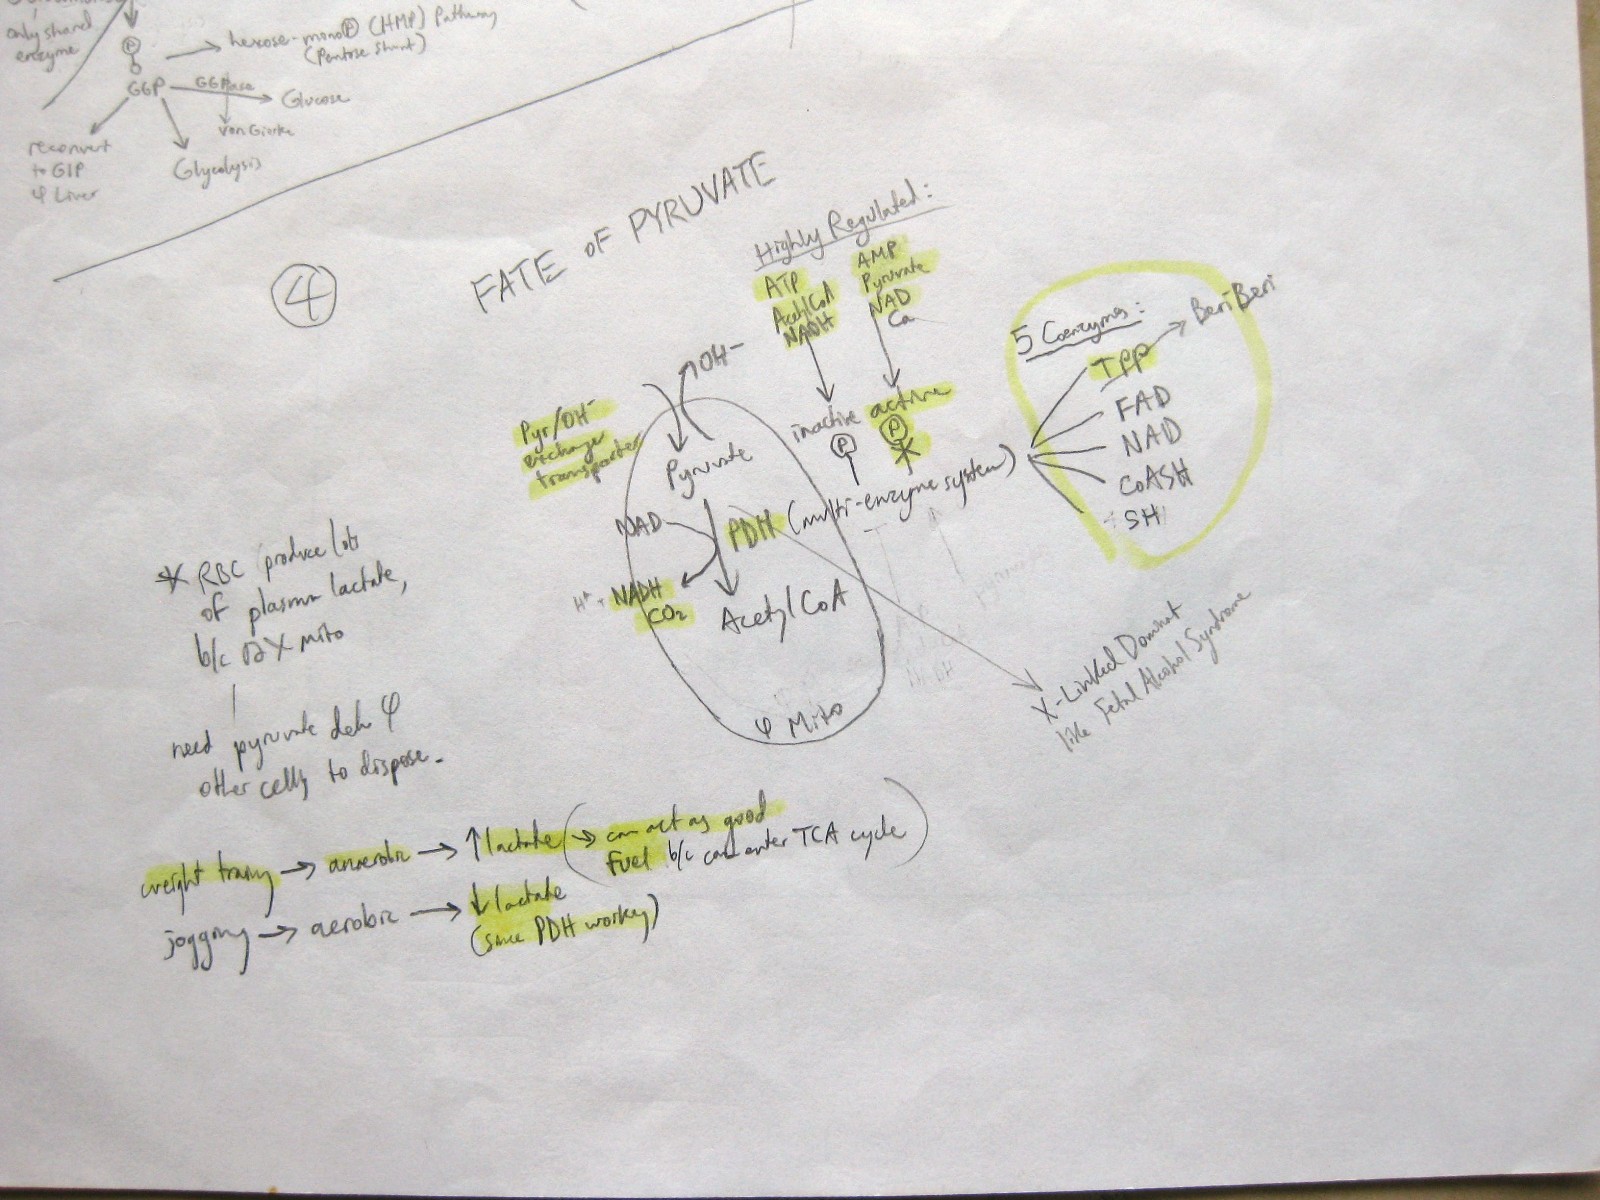 only shared
enzyme
P
hexose-mono P (HMP) Pathway
(Pentose Shunt)
G6P
G6Pase
Glucose
Von Gierke
reconvert
to G1P
φ Liver
Glycolysis
4
FATE OF PYRUVATE
Highly Regulated:
ATP
Acetyl CoA
NADH
AMP
Pyruvate
NAD
Ca
inactive
active
P
P
OH-
Pyr/OH-
exchange
transporter
Pyruvate
NAD
PDH (multi-enzyme system)
H+ + NADH
CO2
Acetyl CoA
φ Mito
5 Coenzymes:
TPP
BeriBeri
FAD
NAD
CoASH
SH
X-Linked Dominant
like Fetal Alcohol Syndrome
* RBC produce lots
of plasma lactate,
b/c X mito
need pyruvate deh φ
other cells to dispose.
weight training → anaerobic → ↑ lactate (→ can act as good
fuel b/c can enter TCA cycle)
jogging → aerobic → ↓ lactate
(since PDH working)